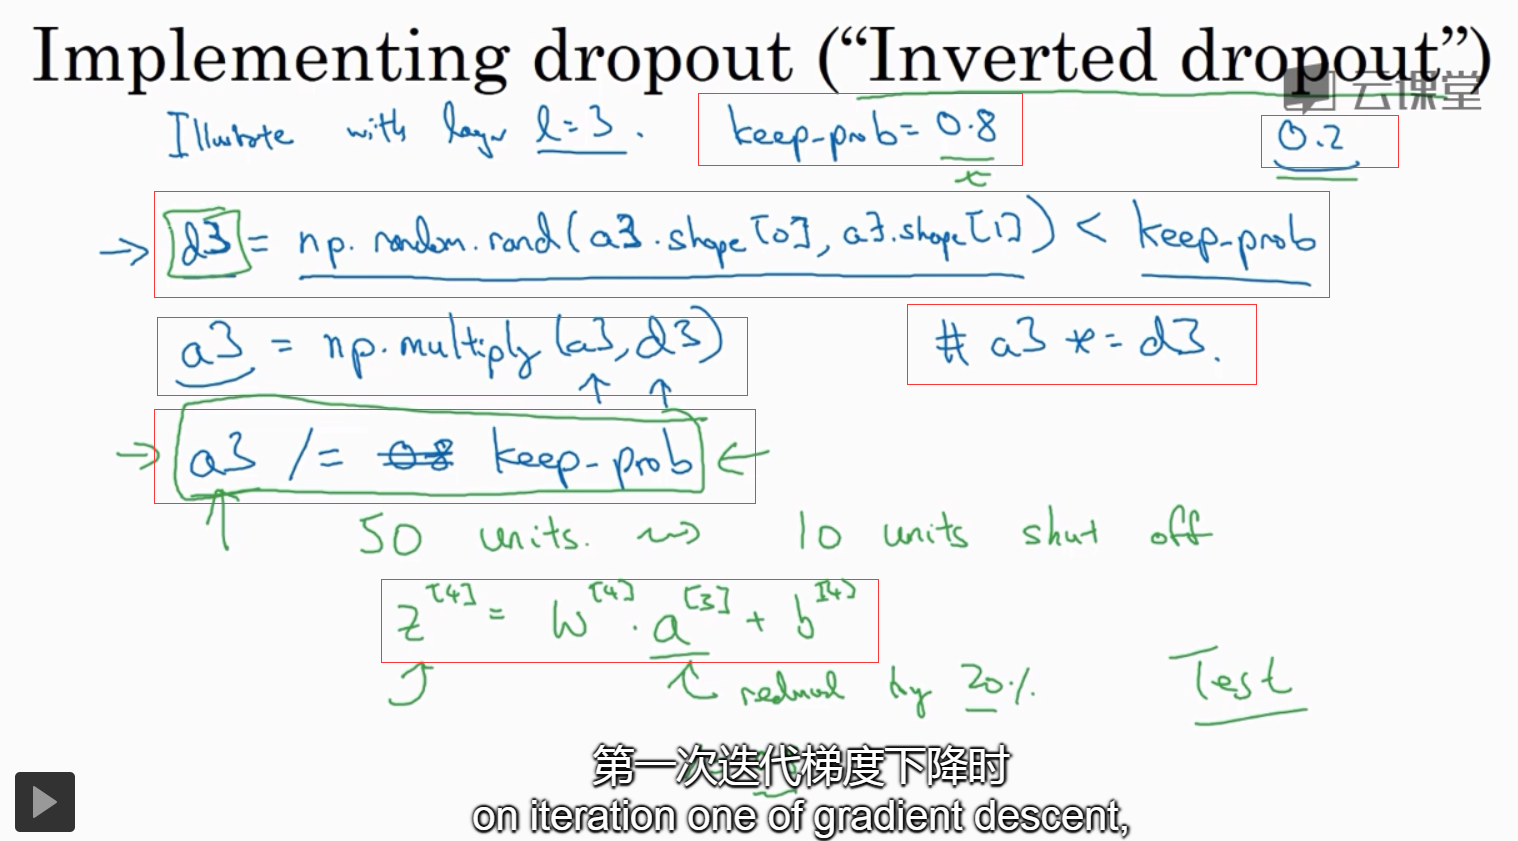 Implementing dropout (“Inverted dropout”)
云课堂
Illustrate with layer l=3. keep-prob= 0.8 0.2
→ d3 = np.random.rand(a3.shape[0], a3.shape[1]) < keep-prob
a3 = np.multiply(a3, d3) # a3 *= d3.
→ a3 /= 0.8 keep-prob ←
↑ 50 units. ⇝ 10 units shut off
z^[4] = W^[4] · a^[3] + b^[4]
reduced by 20% Test
第一次迭代梯度下降时
on iteration one of gradient descent,